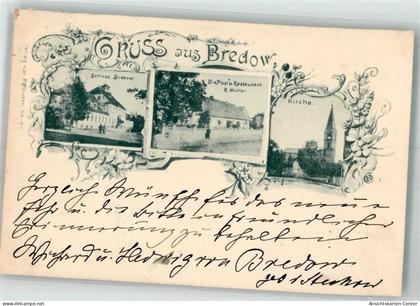 Gruss aus Bredow.
Schloss Bredow
Die Post u. Restaurant
R. Müller.
Kirche.
Herzlich Wünsch für das neue
Jahr u. die Bitte in freundlicher
Erinnerung zu behalten
Wichard u. Hedwig von Bredow
Ansichtskarten-Center